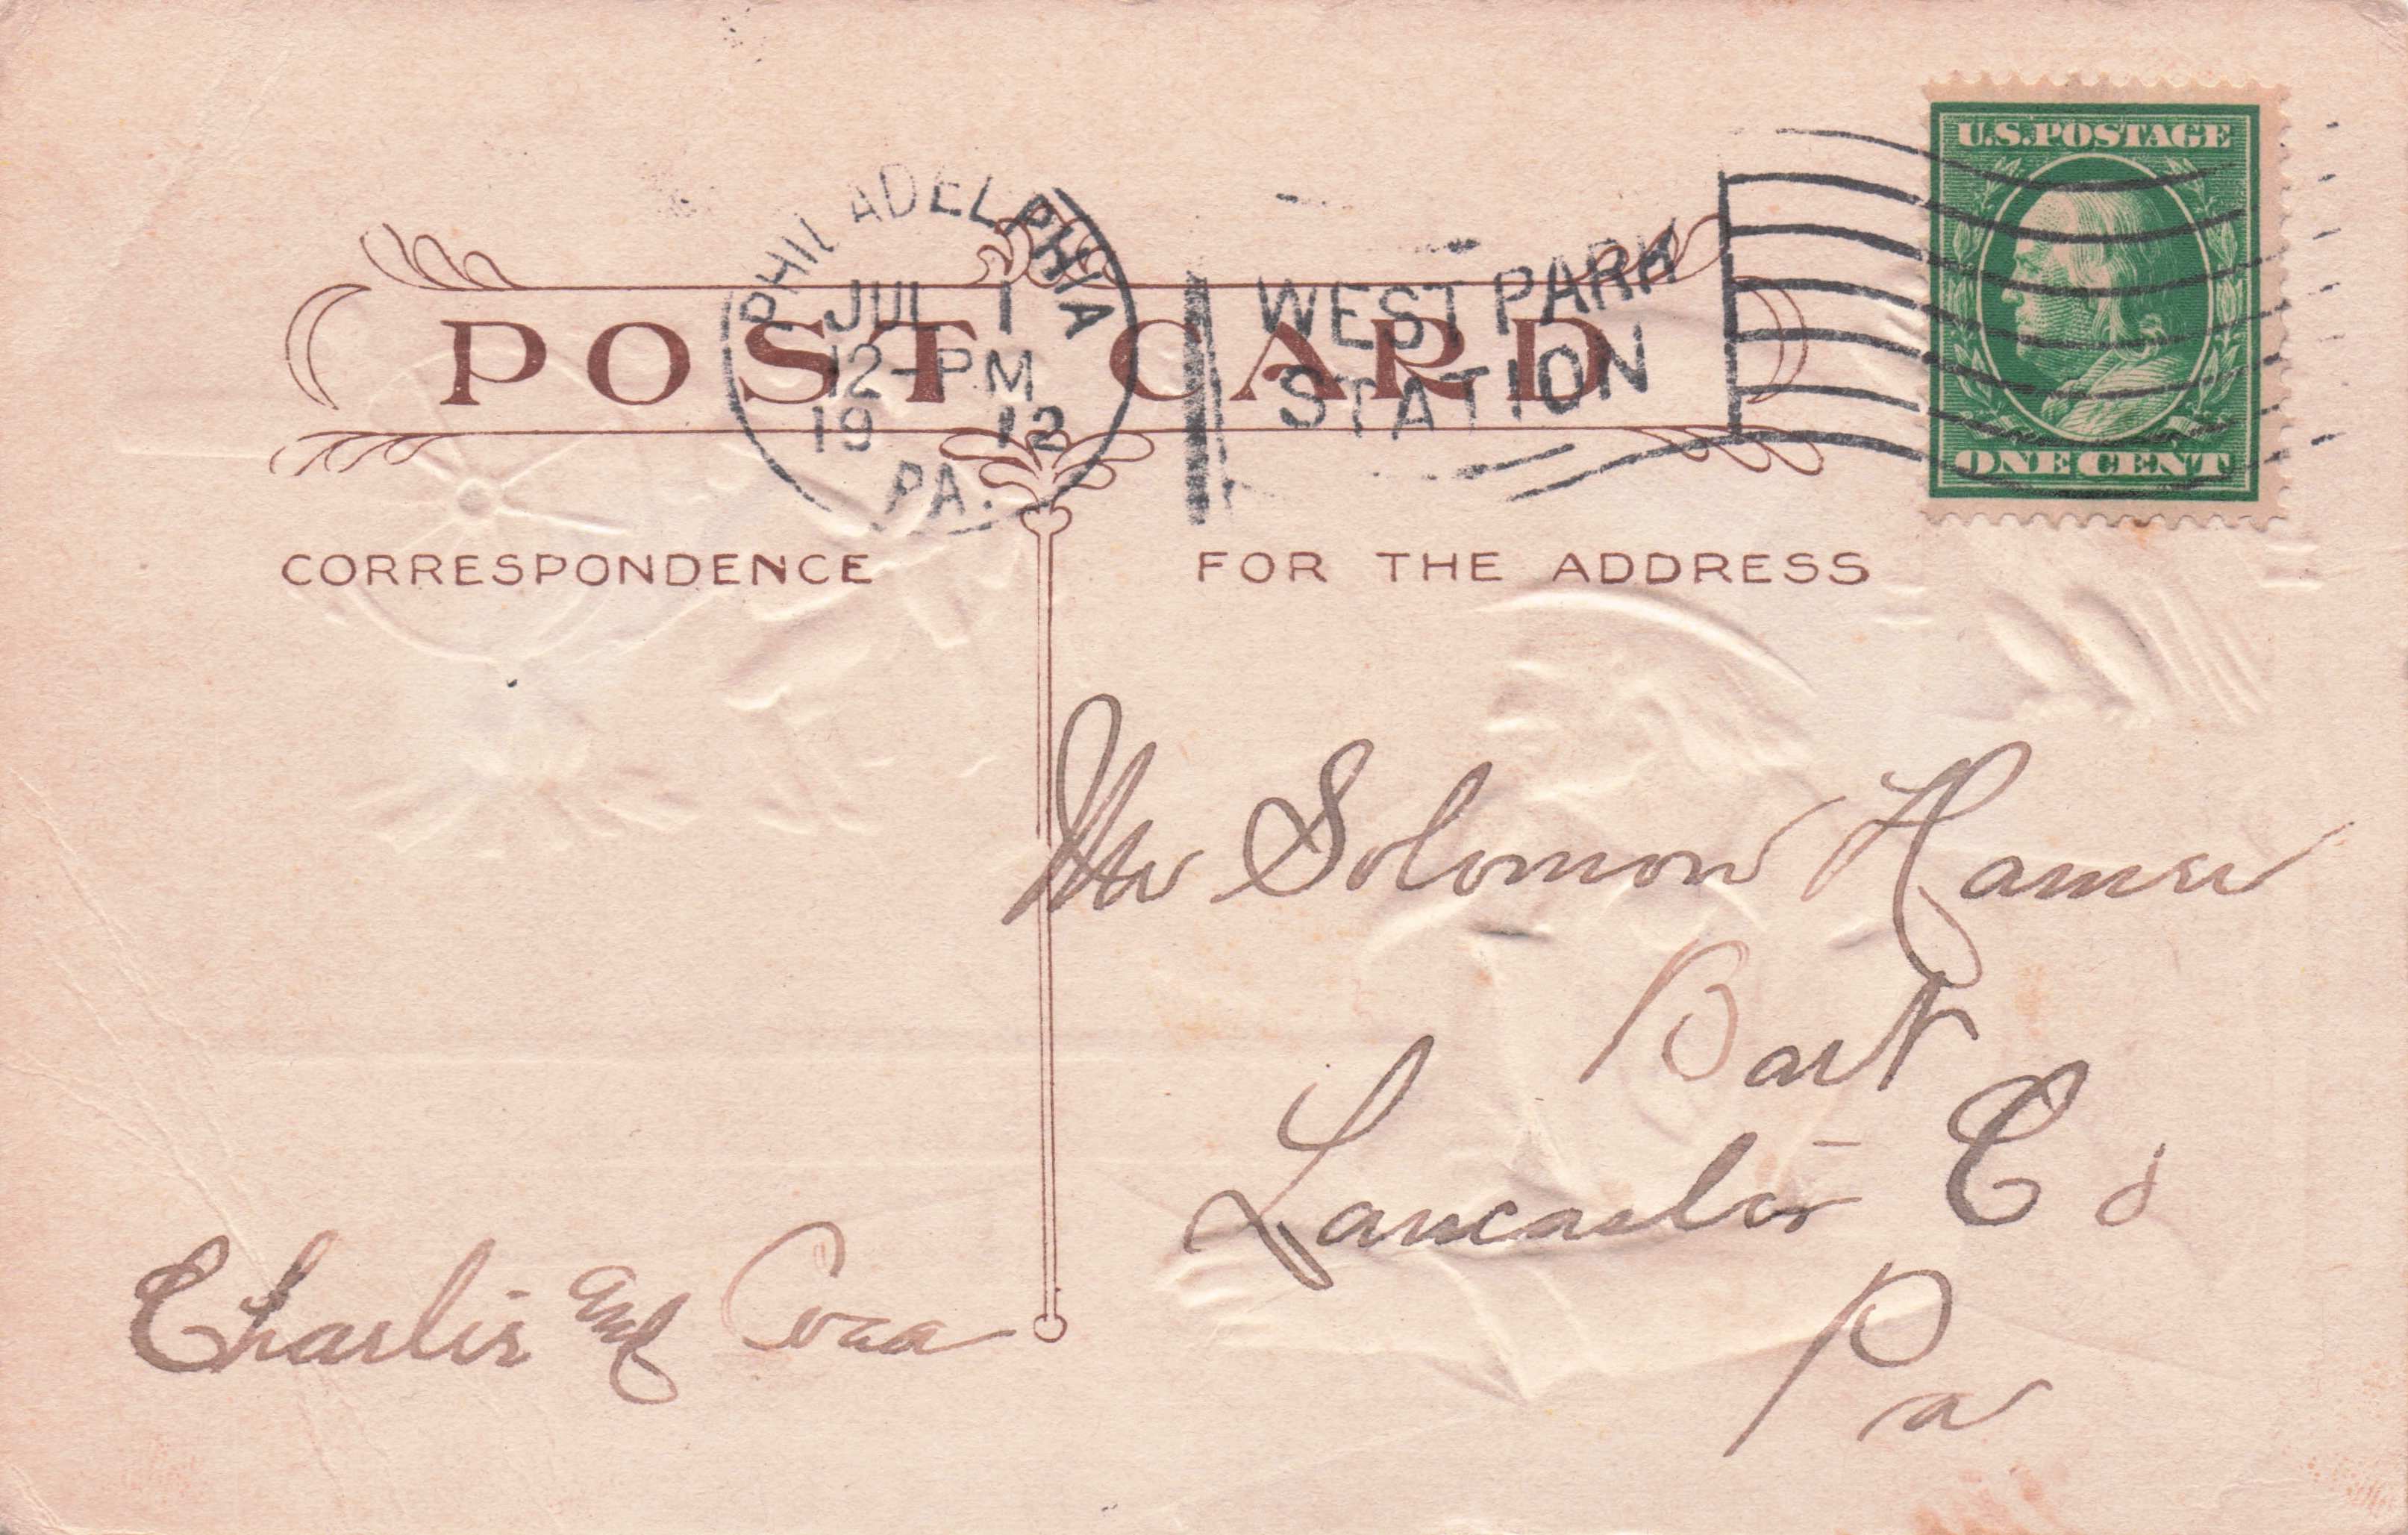 U.S. POSTAGE
PHILADELPHIA
JUL 1
12-PM
1912
PA.
WEST PARK
STATION
POST CARD
ONE CENT
CORRESPONDENCE
FOR THE ADDRESS
Mr Solomon
Bart
Lancaster Co
Pa
Charlie and Cora